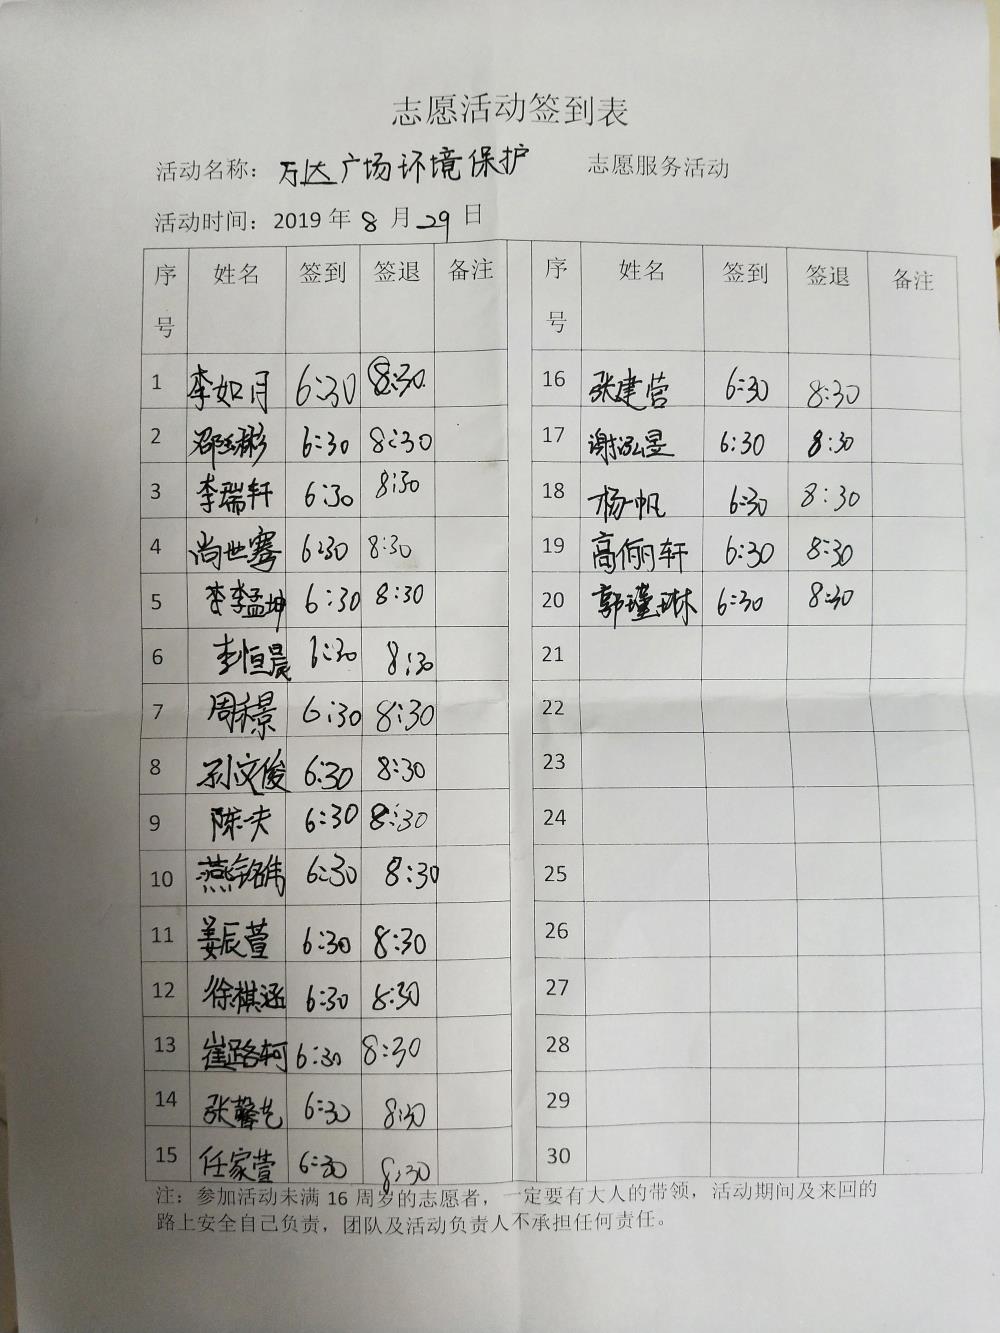 志愿活动签到表
活动名称：万达广场环境保护 志愿服务活动
活动时间：2019 年 8 月 29 日
序号 姓名 签到 签退 备注 序号 姓名 签到 签退 备注
1 李如月 6:30 8:30 16 张建营 6:30 8:30
2 邵钰彬 6:30 8:30 17 谢泓昱 6:30 8:30
3 李瑞轩 6:30 8:30 18 杨一帆 6:30 8:30
4 尚世骞 6:30 8:30 19 高俪轩 6:30 8:30
5 李孟坤 6:30 8:30 20 郭瑾琳 6:30 8:30
6 李恒晨 6:30 8:30 21
7 周禾景 6:30 8:30 22
8 孙文俊 6:30 8:30 23
9 陈一夫 6:30 8:30 24
10 燕铭伟 6:30 8:30 25
11 姜辰萱 6:30 8:30 26
12 徐棋涵 6:30 8:30 27
13 崔路轲 6:30 8:30 28
14 张馨艺 6:30 8:30 29
15 任家萱 6:30 8:30 30
注：参加活动未满 16 周岁的志愿者，一定要有大人的带领，活动期间及来回的
路上安全自己负责，团队及活动负责人不承担任何责任。